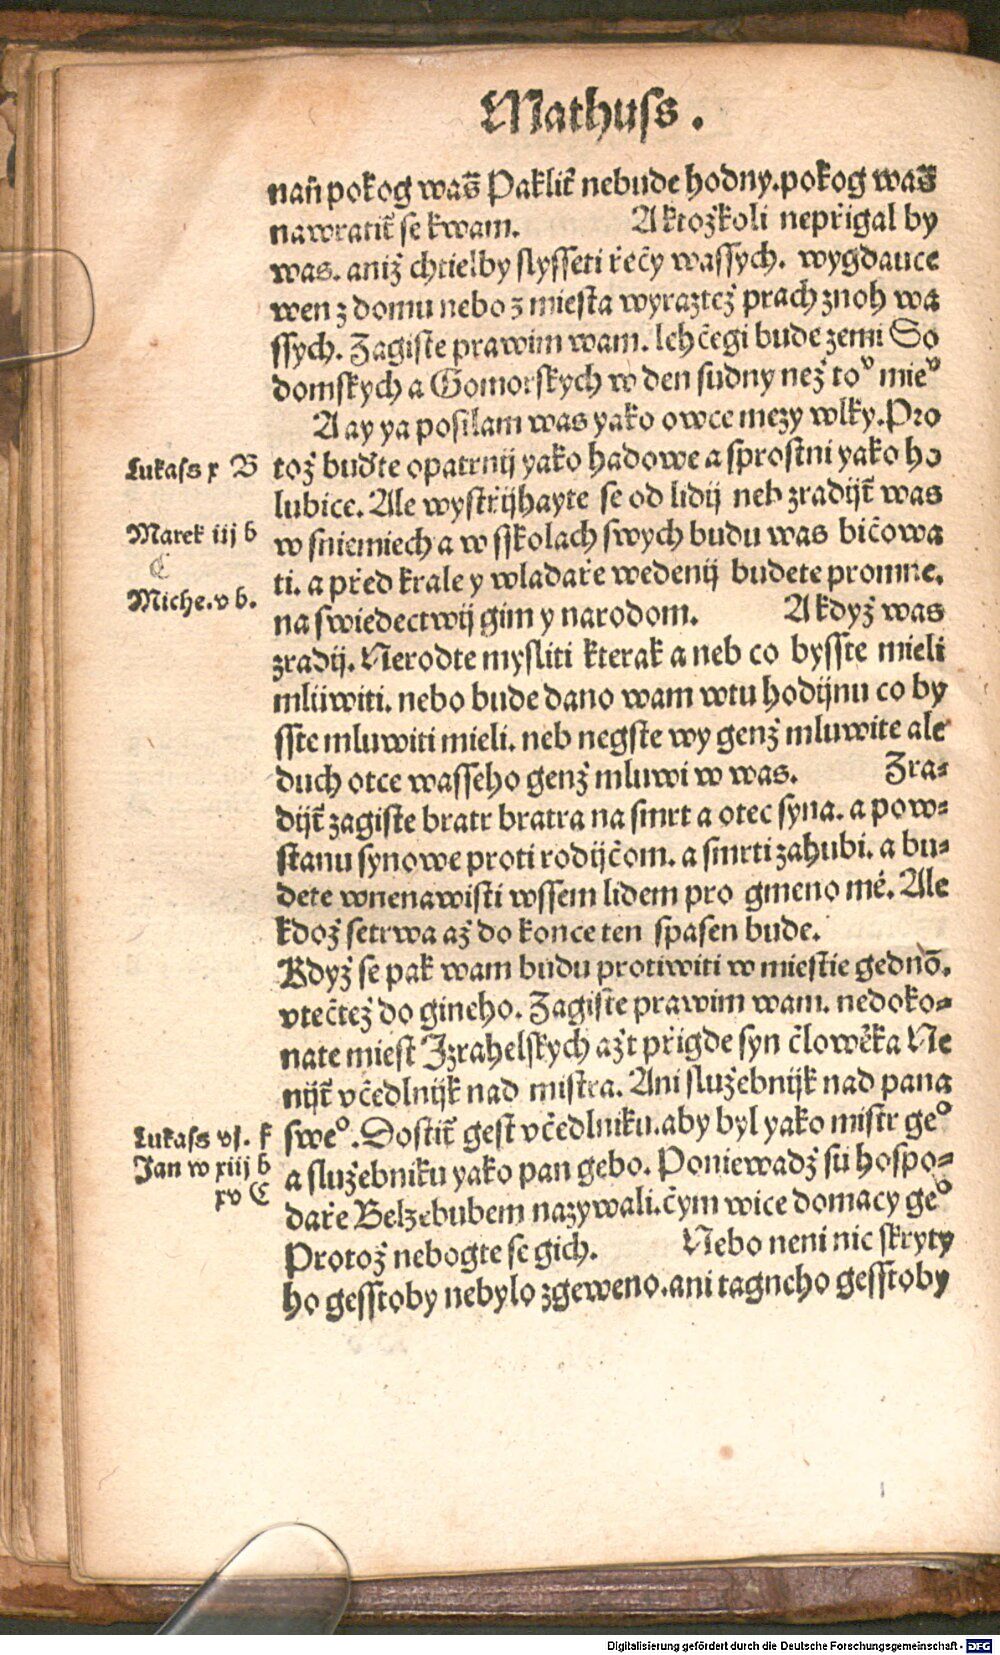 Mathuſs.
naň pokog waš Pakliť nebude hodny. pokog waš
nawratiť ſe kwam. A ktožkoli nepřigal by
was. aniž chtielby ſlyſſeti řečy waſſych. wygdauce
wen z domu nebo z mieſta wyraztež prach znoh wa
ſſych. Zagiſte prawim wam. lehčegi bude zemi So
domſkych a Gomorſkych w den ſudny než toᵛ mieᵛ
A ay ya poſilam was yako owce mezy wlky. Pro
tož buďte opatrnij yako hadowe a sproſtni yako ho
Lukaſs x B
lubice. Ale wyſtřijhayte ſe od lidij neb zradijť was
w ſniemiech a w ſſkolach ſwych budu was bičowa
Marek iij b
C
ti. a před krale y wladaře wedenij budete promne.
Miche. v b.
na ſwiedectwij gim y narodom. A když was
zradij. Nerodte myſliti kterak a neb co byſſte mieli
mluwiti. nebo bude dano wam wtu hodijnu co by
ſſte mluwiti mieli. neb negſte wy genž mluwite ale
duch otce waſſeho genž mluwi w was. Zra⸗
dijť zagiſte bratr bratra na ſmrt a otec ſyna. a pow⸗
ſtanu ſynowe proti rodijčom. a ſmrti zahubi. a bu⸗
dete wnenawiſti wſſem lidem pro gmeno mé. Ale
kdož ſetrwa až do konce ten ſpaſen bude.
Když ſe pak wam budu protiwiti w mieſtie gednō.
vtečtež do gineho. Zagiſte prawim wam. nedoko⸗
nate mieſt Izrahelſkych ažt přigde ſyn člowěka Ne
nijť včedlnijk nad miſtra. Ani ſlužebnijk nad pana
ſweº. Doſtiť geſt včedlniku. aby byl yako miſtr geº
Lukaſs vj. k
a ſlužebniku yako pan geho. Poniewadž ſu hoſpo⸗
Jan w xiij b
xv C
daře Belzebubem nazywali. čym wice domacy geº
Protož nebogte ſe gich. Nebo neni nic ſkryty
ho geſſtoby nebylo zgeweno. ani tagneho geſſtoby
Digitalisierung gefördert durch die Deutsche Forschungsgemeinschaft - DFG